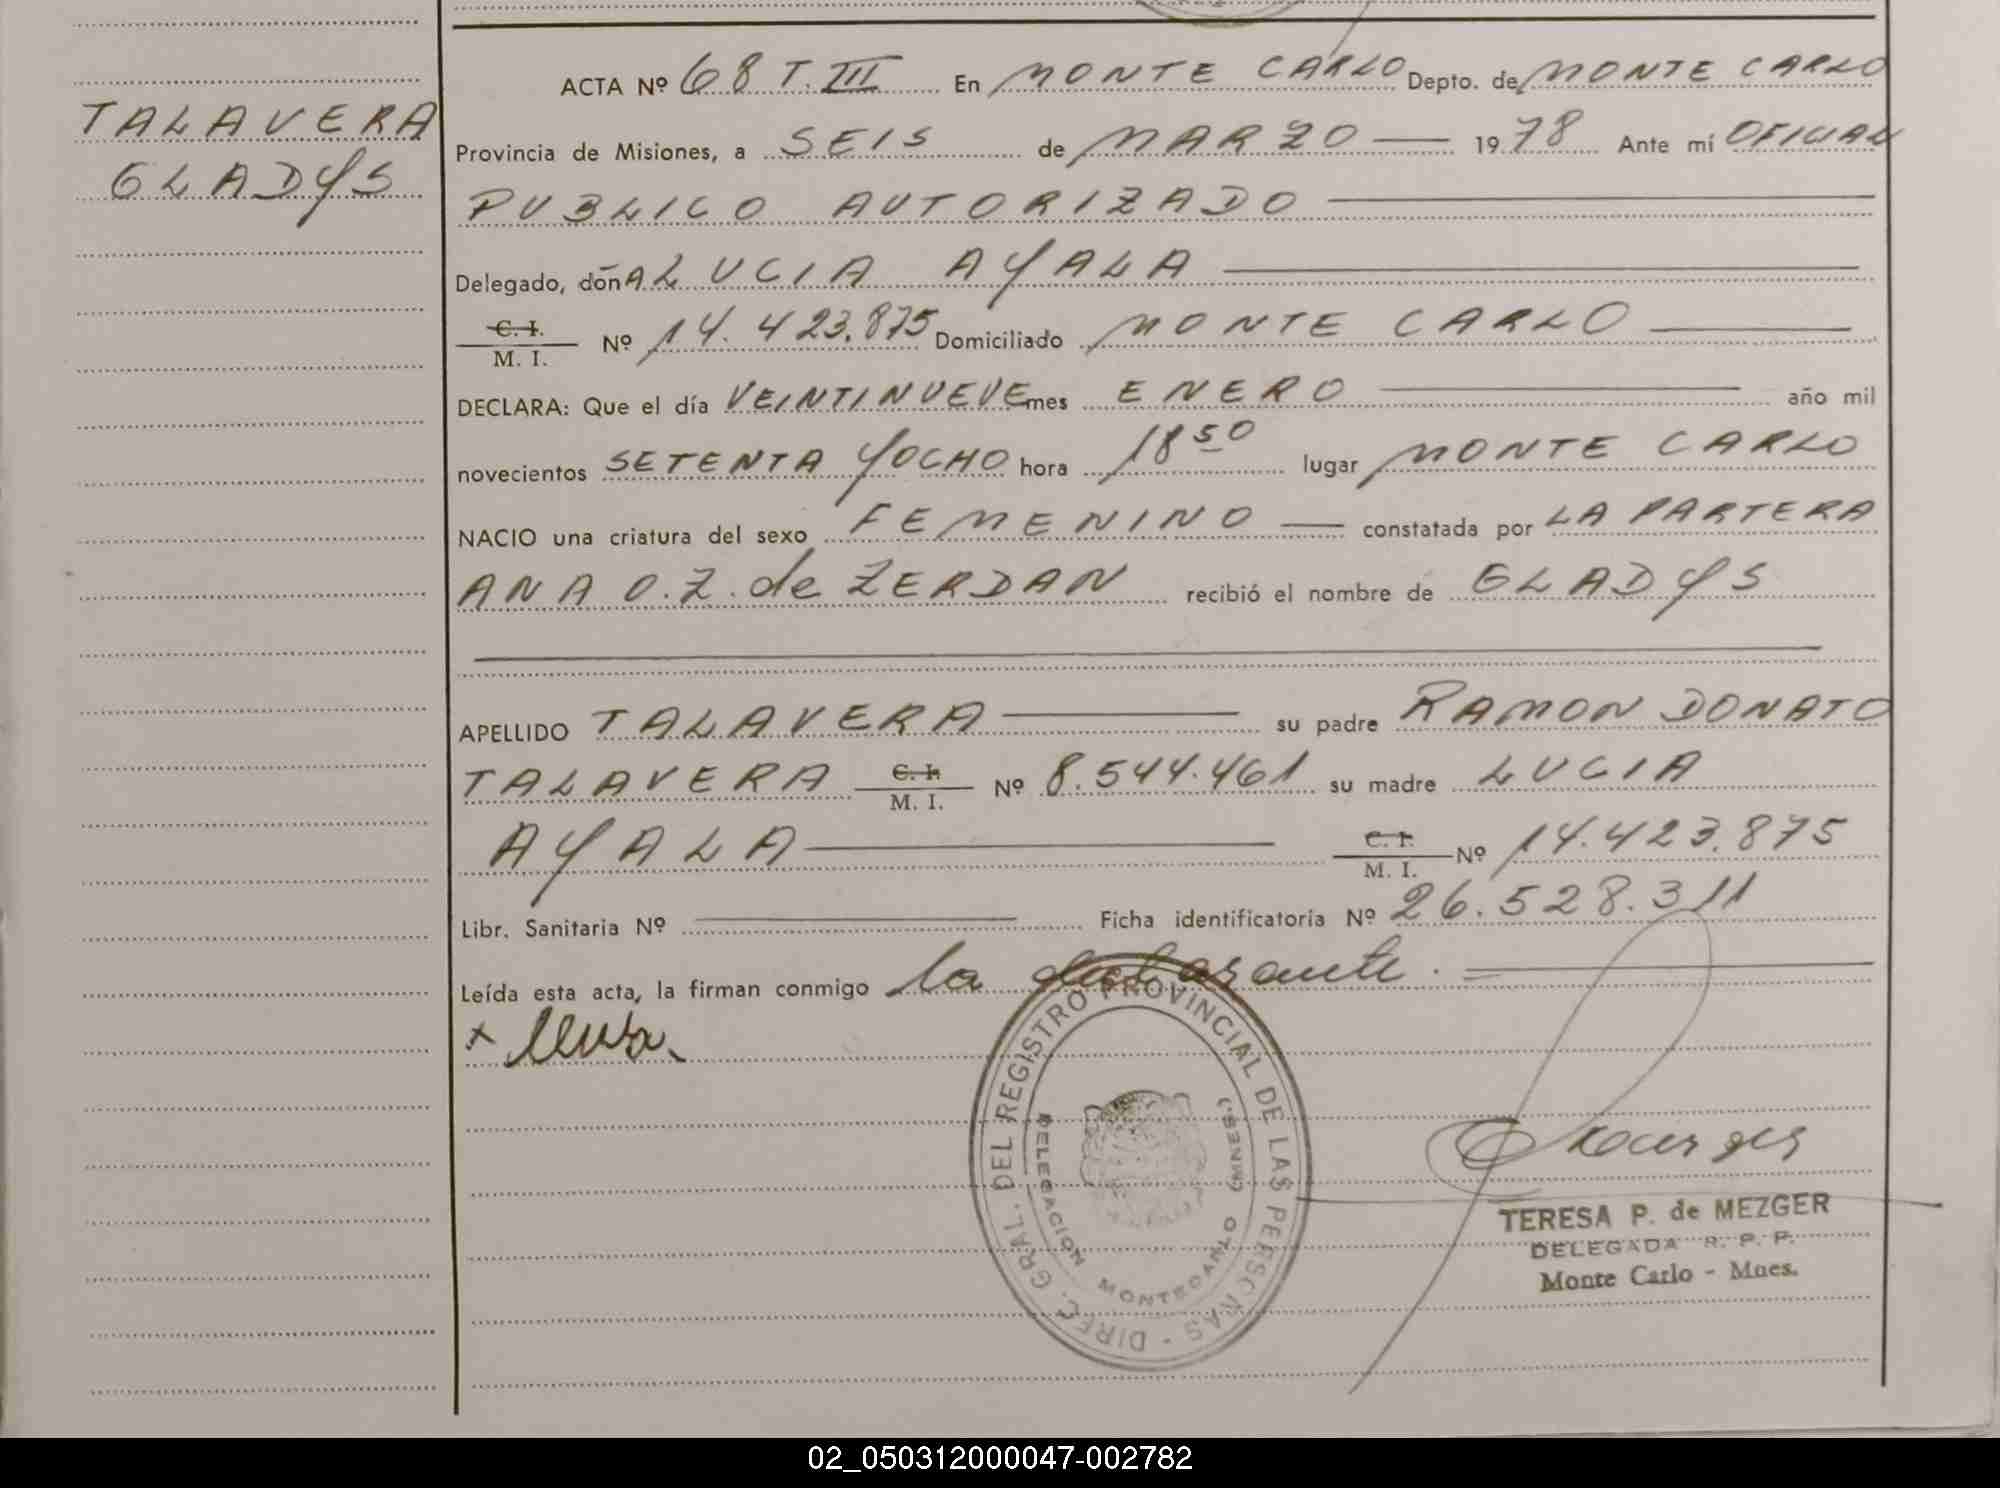 TALAVERA
GLADYS
ACTA Nº 68 T. III En MONTE CARLO Depto. de MONTE CARLO
Provincia de Misiones, a SEIS de MARZO 1978 Ante mí OFICIAL
PUBLICO AUTORIZADO
Delegado, doñA LUCIA AYALA
C. I.
M. I. Nº 14.423.875 Domiciliado MONTE CARLO
DECLARA: Que el día VEINTINUEVE mes ENERO año mil
novecientos SETENTA Y OCHO hora 18 50 lugar MONTE CARLO
NACIO una criatura del sexo FEMENINO constatada por LA PARTERA
ANA O. Z. de ZERDAN recibió el nombre de GLADYS
APELLIDO TALAVERA su padre RAMON DONATO
TALAVERA C. I. M. I. Nº 8.544.461 su madre LUCIA
AYALA C. I. M. I. Nº 14.423.875
Libr. Sanitaria Nº Ficha identificatoria Nº 26.528.311
Leída esta acta, la firman conmigo la declarante.
DIREC. GRAL. DEL REGISTRO PROVINCIAL DE LAS PERSONAS -
DELEGACION MONTECARLO (MNES.)
TERESA P. de MEZGER
DELEGADA R. P. P.
Monte Carlo - Mnes.
02_050312000047-002782